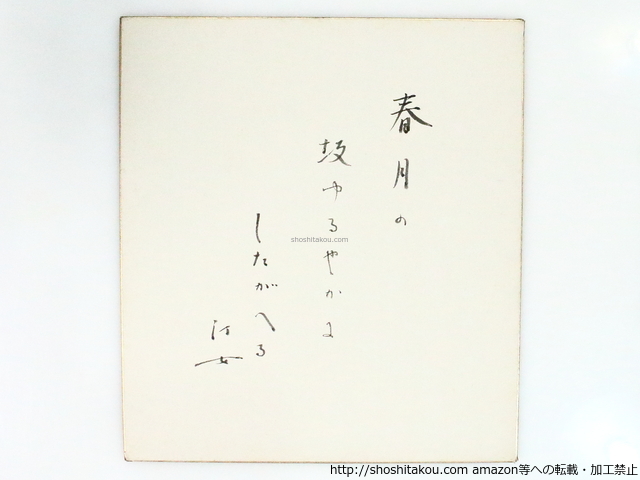 春月の
坂ゆるやかに
したがへる
汀女
shoshitakou.com
http://shoshitakou.com amazon等への転載・加工禁止